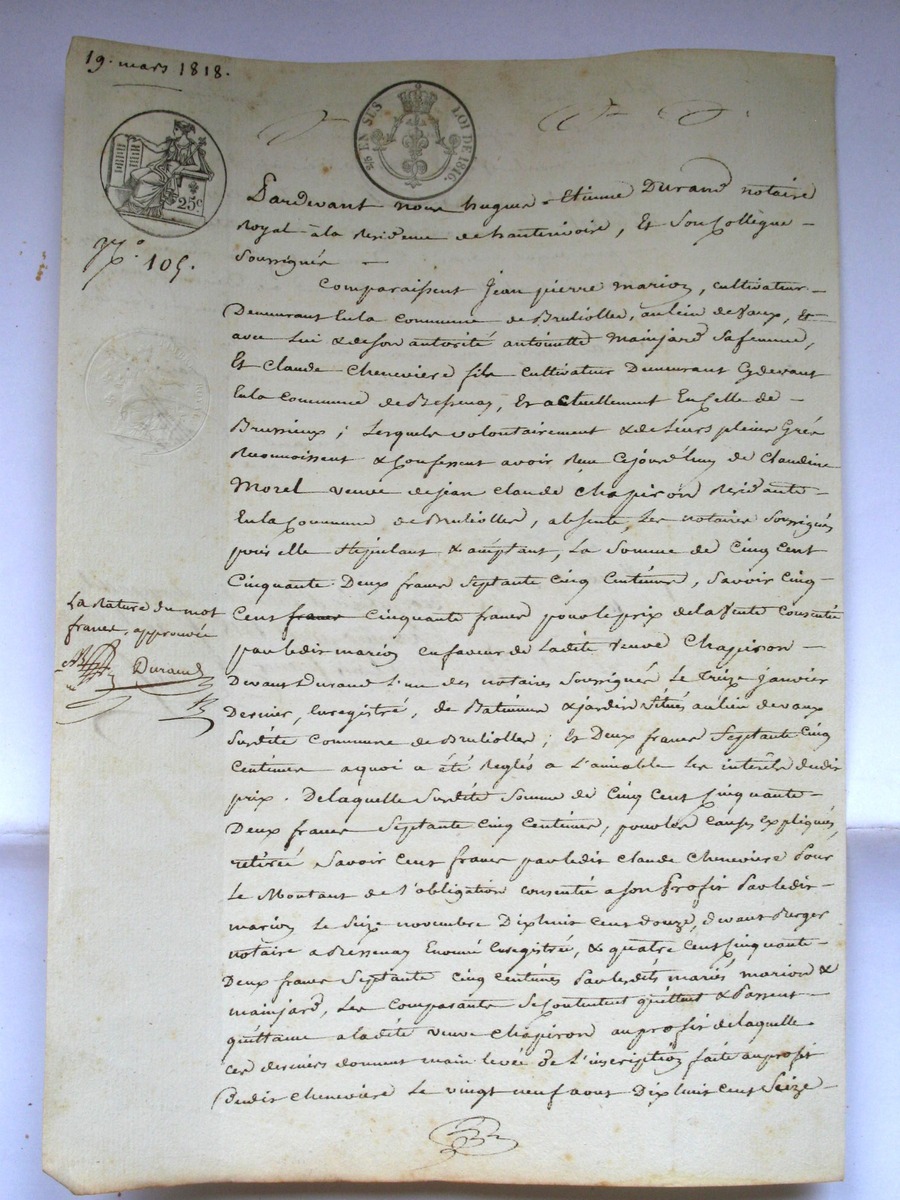 19. mars 1818.
25c
¾ EN SUS LOI DE 1816.
N.° 105.
Pardevant nous hugues-Etienne Durand notaire
royal à la Residence de hauterivoire, Et Son Collègue
Soussignés
Comparaissent Jean pierre marion, cultivateur
Demeurant En la Commune de Brullioles, au lieu de Vaux, Et
avec Lui & de son autorité antoinette mainjard Sa femme,
Et Claude Chenevière fils Cultivateur Demeurant Cydevant
En la Commune de Bessenay, Et actuellement En Celle de
Brussieux; Lesquels volontairement & de Leurs pleins Grés
Reconnoissent & Confessent avoir Reçu Cejourd'huy de Claudine
Morel veuve de jean Claude Chapiron Residante
En la Commune de Brullioles, absente, Les notaires Soussignés
pour elle stipulant & acceptant, La Somme de Cinq Cent
Cinquante Deux francs Septante Cinq Centimes, Savoir Cinq
Cent francs Cinquante francs pour le prix de la Vente Consentie
La Rature du mot
francs, approuvée
Durand
par ledit marion en faveur de Ladite Veuve Chapiron
Devant Durand L'un des notaires Soussignés Le Treize Janvier
Dernier, Enregistré, de Batimens & jardin Situés au lieu de vaux
Susdite Commune de Brullioles; Et Deux francs Septante Cinq
Centimes a quoi a été Reglés a L'amiable Les intérêts dudit
prix. De laquelle Susdite Somme de Cinq Cent Cinquante
Deux francs Septante Cinq Centimes, pour les Causes Expliquées,
retirée Savoir Cent francs par ledit Claude Chenevière Pour
Le Montant de l'obligation Consentie a son Profit Par ledit
marion Le Seize novembre Dixhuit Cent Douze, devant Berger
notaire a Bessenay Enregistrée, & quatre Cent Cinquante
Deux francs Septante Cinq Centimes Par lesdits mariés marion &
mainjard, Les Comparants Se Contentent quittent & Passent
quittance a ladite veuve Chapiron au profit de laquelle
Ces derniers donnent main levée de L'inscription faite au profit
Dudit Chenevière Le vingt neuf aout Dixhuit Cent Seize